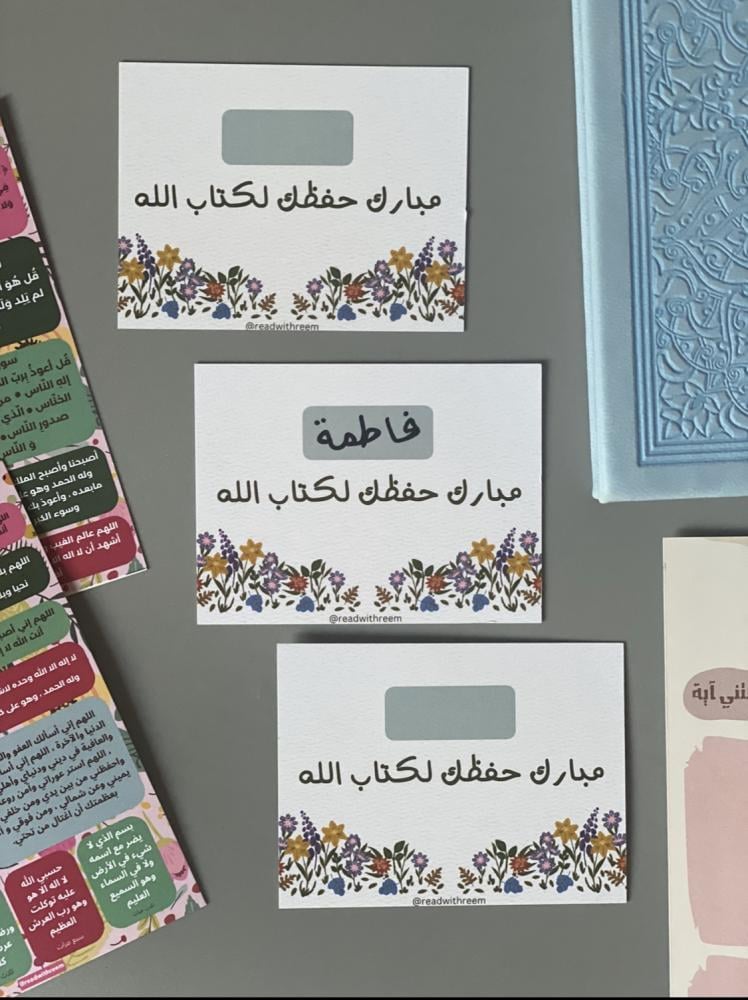 مبارك حفظك لكتاب الله
@readwithreem
فاطمة
مبارك حفظك لكتاب الله
@readwithreem
مبارك حفظك لكتاب الله
@readwithreem
قُل هُوَ
لم يَلِد وَلَم
قُل أعوذُ بِربّ
إلهِ النّاس • من
الخنّاس • الّذي
صدورِ النّاس •
وَ النّاس
أصبحنا وأصبح الملك
وله الحمد وهو
مابعده ، وأعوذ بك
وسوء
اللهم عالم الغيب
أشهد أن لا اله
اللهم
نحيا
اللهم إني
أنت الله لا
لا إله الا الله وحده
وله الحمد ، وهو على
اللهم إني أسألك العفو
الدنيا والآخرة ، اللهم إني
والعافية في ديني ودنياي وأهلي
، اللهم استر عوراتي وآمن
واحفظني من بين يدي ومن خلفي
يميني وعن شمالي ، ومن فوقي و
بعظمتك أن اغتال من تحتي
بسم الذي لا
يضر مع اسمه
شيء في الأرض
ولا في السماء
وهو السميع
العليم
حسبي الله
لا اله الا هو
عليه توكلت
وهو رب العرش
العظيم
@readwithreem
آية